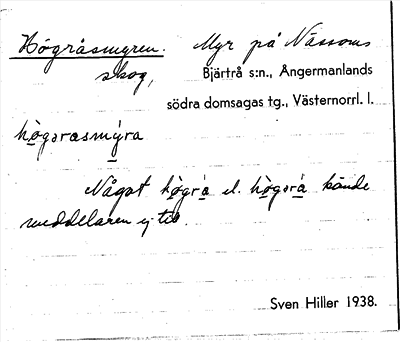 Högråsmyren. Myr på Nässoms
skog,
Bjärtrå s:n., Ångermanlands
södra domsagas tg., Västernorrl. l.
hògərasmýra
Något hògrà el. hògərà kände
meddelaren ej till.
Sven Hiller 1938.